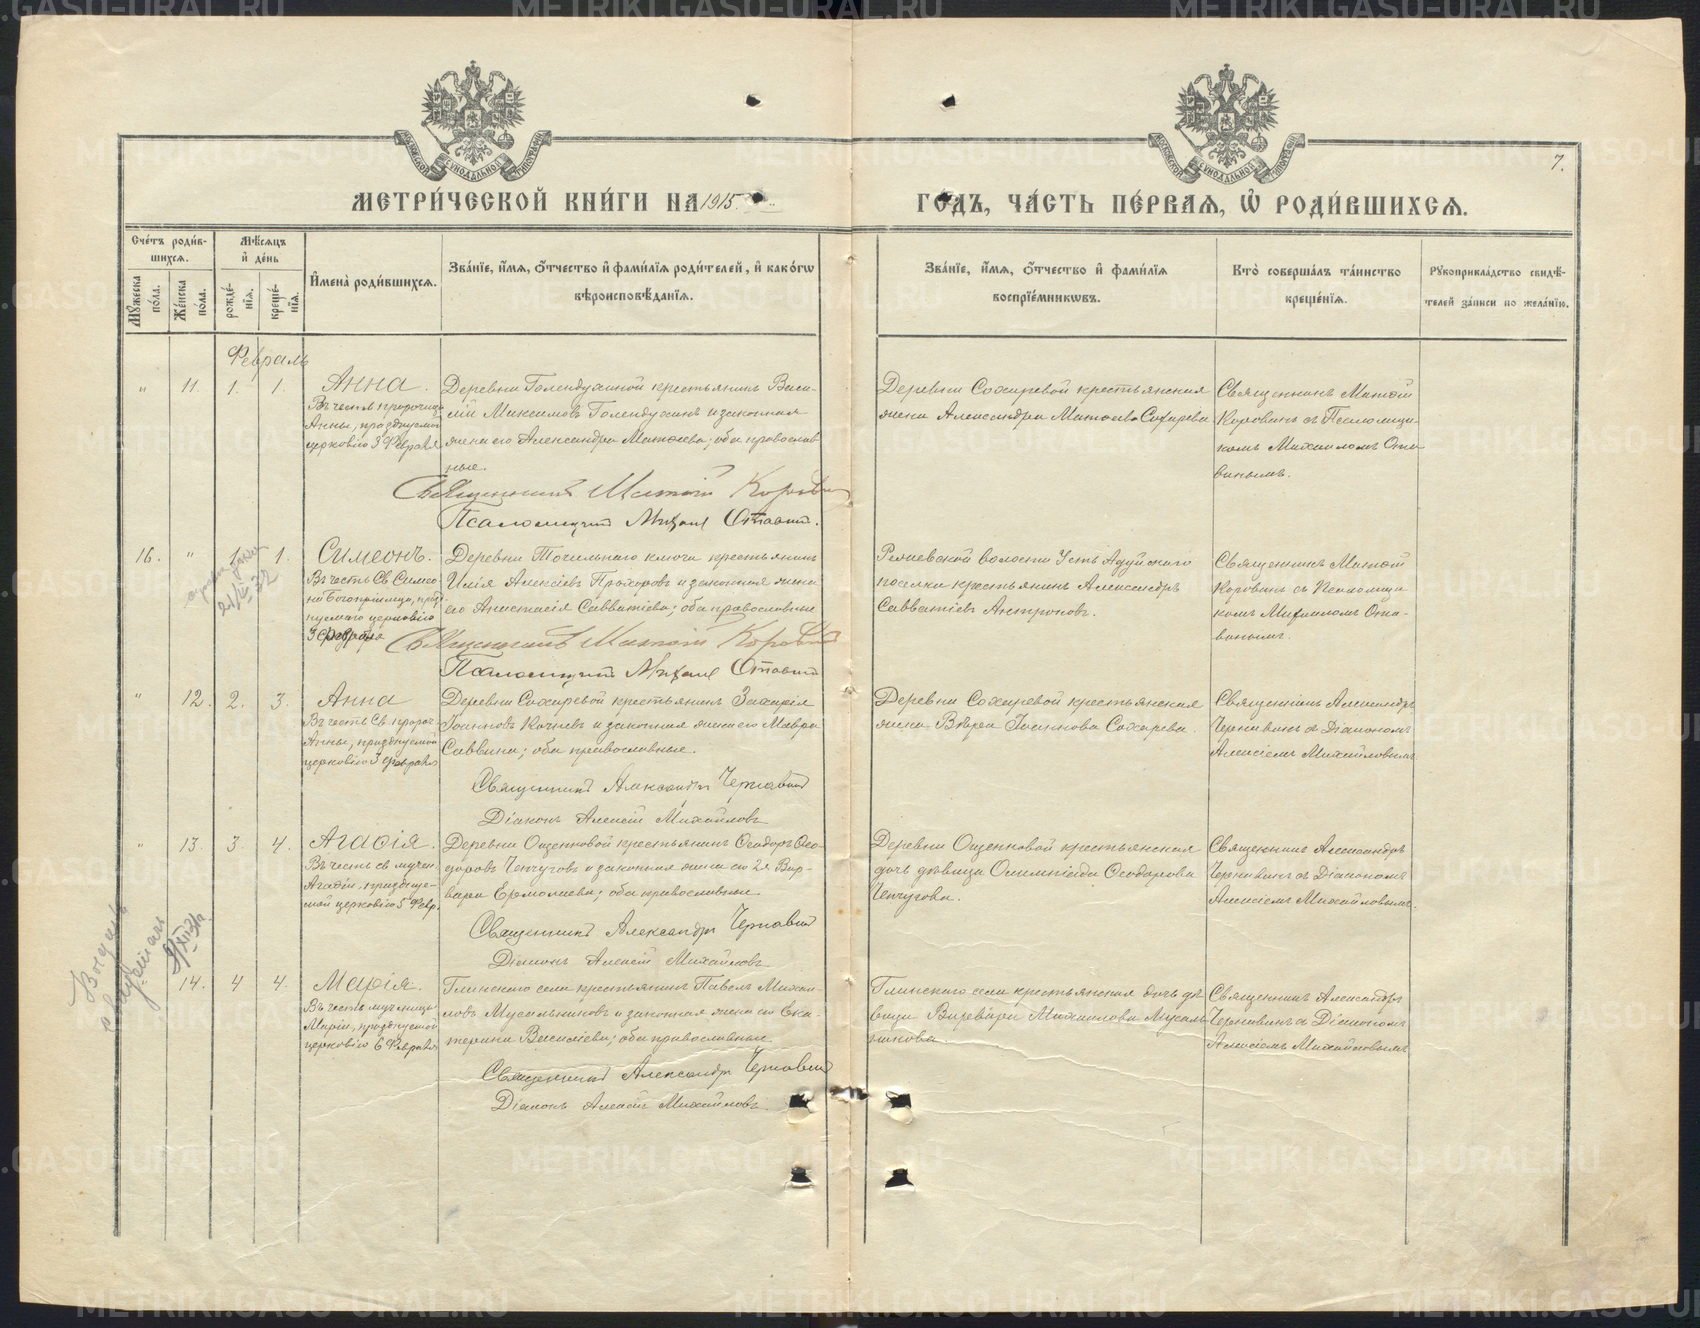 7.
МЕТРИ́ЧЕСКОЙ КНИ́ГИ НА 1915
ГОДЪ, ЧА́СТЬ ПЕ́РВАЯ, Ѡ РОДИ́ВШИХСЯ.
Сче́тъ роди́в-
шихся.
Мꙋ́жеска по́ла.
Же́нска по́ла.
Мѣ́сяцъ и҆ де́нь
рожде́-
нїѧ.
креще́-
нїѧ.
И҆мена̀ роди́вшихся.
Зва́нїе, и҆́мя, ѻ҆́тчество и҆ фами́лїѧ роди́телей, и҆ како́гѡ
вѣроисповѣ́данїѧ.
Зва́нїе, и҆́мя, ѻ҆́тчество и҆ фами́лїѧ
воспрїе́мникѡвъ.
Кто̀ соверша́лъ та́инство
креще́нїѧ.
Рꙋкоприкла́дство свидѣ́-
телей за́писи по жела́нїю.
Февраль
" 11. 1. 1.
Анна.
Въ честь пророчицы
Анны, празднуемой
церковію 3 Февраля
Деревни Голендухиной крестьянинъ Васи-
лій Максимовъ Голендухинъ и законная
жена его Александра Матѳеева; оба православ
ные.
Священникъ Матѳій Коровин
Псаломщикъ Михаил Ставин.
Деревни Сохаревой крестьянская
жена Александра Матѳеева Сохарева
Священникъ Матѳій
Коровинъ съ Псаломщи-
комъ Михаиломъ Ста
винымъ.
16. " 1. 1.
Симеонъ.
Въ честь Св. Симео
на Богопріимца, праз
нуемаго церковію
3 февраля
Деревни Точильнаго ключа крестьянинъ
Илія Алексіевъ Прохоровъ и законная жена
его Анастасія Савватіева; оба православные
Священникъ Матѳій Коровин
Псаломщикъ Михаил Ставин
волости Усть Адуйскаго
поселка крестьянинъ Александръ
Савватіевъ Антроповъ.
Священникъ Матѳій
Коровинъ съ Псаломщи
комъ Михаиломъ Ста-
винымъ.
" 12. 2. 3.
Анна
Въ честь Св. пророч.
Анны, празднуемой
церковію 3 февраля
Деревни Сохаревой крестьянинъ Захарія
Іоанновъ Кочневъ и законная жена его Мавра
Саввина; оба православные.
Священникъ Александръ Чернавин
Діаконъ Алексій Михайловъ
Деревни Сохаревой крестьянская
жена Вѣра Іоаннова Сохарева.
Священникъ Александръ
Чернавинъ съ Діакономъ
Алексіемъ Михайловымъ
" 13. 3. 4.
Агафія.
Въ честь св. мучен.
Агафіи, празднуе-
мой церковію 5 Февр.
Деревни Ощепковой крестьянинъ Ѳеодоръ Ѳео-
доровъ Чепчуговъ и законная жена его 2я Вар-
вара Ермолаева; оба православные
Священникъ Александръ Чернавин
Діаконъ Алексій Михайловъ
Деревни Ощепковой крестьянская
дочь дѣвица Олимпіада Ѳеодорова
Чепчугова.
Священникъ Александръ
Чернавинъ съ Діакономъ
Алексіемъ Михайловымъ.
14. 4 4.
Марія.
Въ честь мученицы
Маріи, празднуемой
церковію 6 Февраля
Глинскаго села крестьянинъ Павелъ Михаи
ловъ Мусальниковъ и законная жена его Ека-
терина Василіева; оба православные
Священникъ Александръ Чернавин
Діаконъ Алексій Михайловъ.
Глинскаго села крестьянская дочь дѣ
вица Варвара Михаилова Мусаль
никова.
Священникъ Александръ
Чернавинъ съ Діакономъ
Алексіемъ Михайловымъ